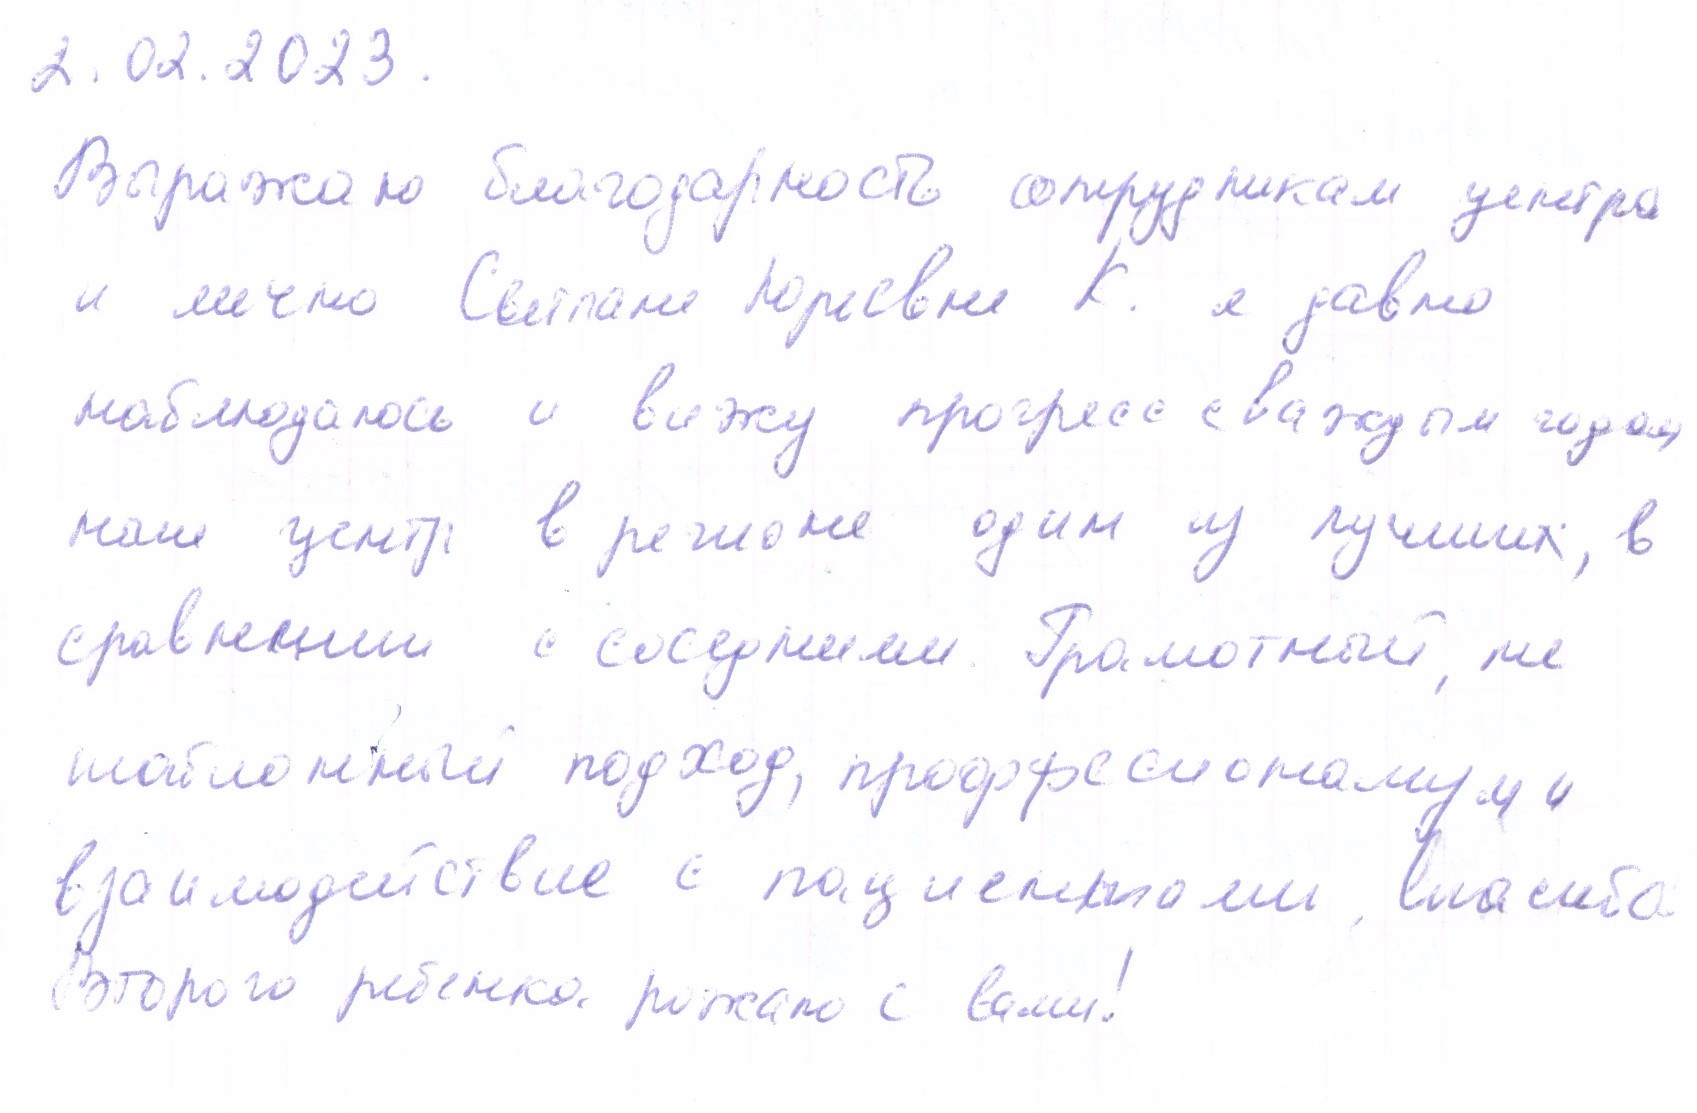 2.02.2023.
Выражаю благодарность сотрудникам центра
и лично Светлане Юрьевне К. я давно
наблюдаюсь и вижу прогресс с каждым годом
наш центр в регионе один из лучших, в
сравнении с соседними. Грамотный, не
шаблонный подход, профффессионализм и
взаимодействие с пациентами, спасибо
Второго ребенка рожаю с вами!